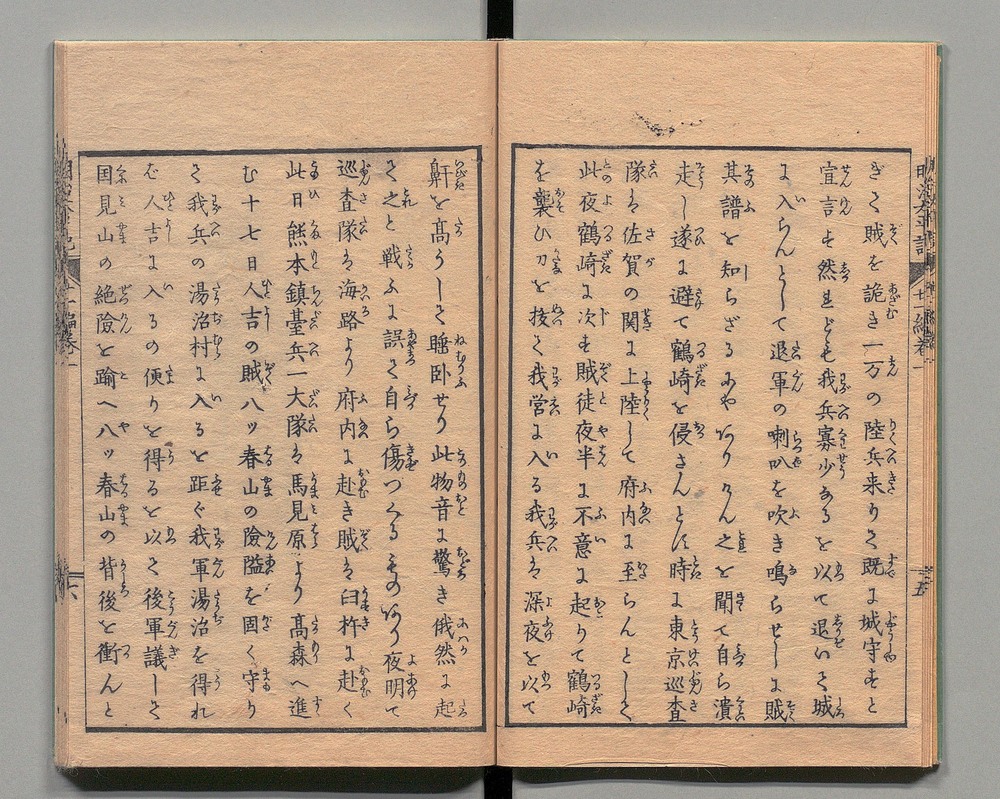 ぎて賊を詭き一万の陸兵来りて既に城守すと
宣言す然 ども我兵寡少なるを以て退いて城
に入らんとして退軍の喇叭を吹き鳴らせしに賊
其譜を知らざるにやありけん之を聞て自ら潰
走し遂に避て鶴崎を侵さんとす時に東京巡査
隊は佐賀の関に上陸して府内に至らんとして
此夜鶴崎に次す賊徒夜半に不意に起りて鶴崎
を襲ひ刀を抜て我営に入る我兵は深夜を以て
五
鼾を高うして睡臥せり此物音に驚き俄然に起
て之と戦ふに誤て自ら傷つくるものあり夜明て
巡査隊は海路より府内に赴き賊は臼杵に赴く
此日熊本鎮臺兵一大隊は馬見原より高森へ進
む十七日人吉の賊八ッ春山の險隘を固く守り
て我兵の湯沼村に入るを距ぐ我軍湯沼を得れ
ば人吉に入るの便りを得るを以て後軍議して
国見山の絶險を踰へ八ッ春山の背後を衝んと
六